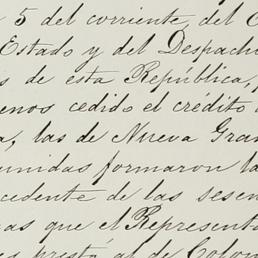 5 del corriente, del C
Estado y del Despach
s de esta República,
enos cedido el crédito
a, las de Nueva Gran
unidas formaron la
cedente de las sesen
as que el Represent
es prestó al de Colom